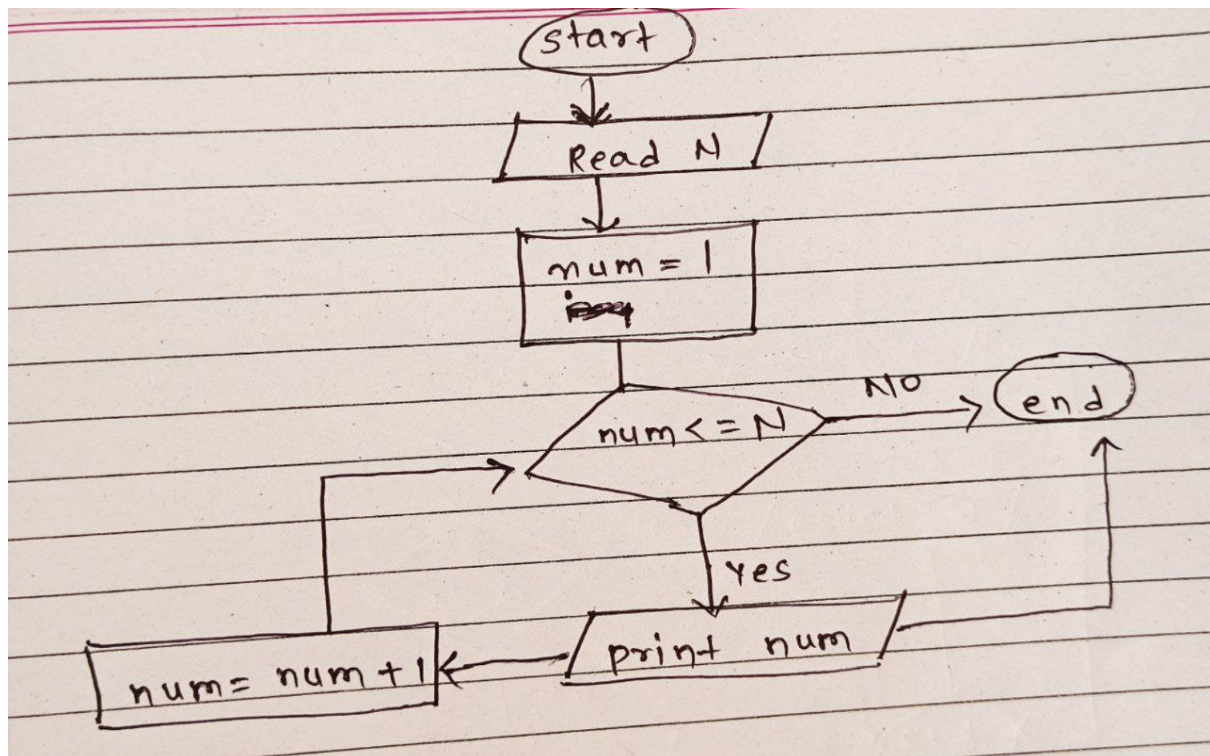 start
Read N
num = 1
num <= N
NO
end
Yes
print num
num = num + 1